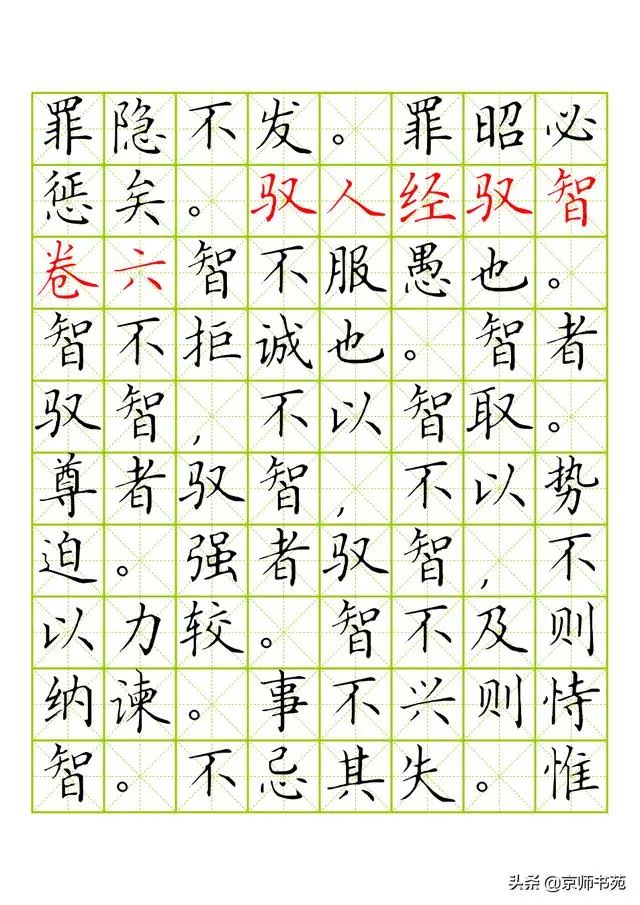 罪隐不发。罪昭必
惩矣。驭人经驭智
卷六智不服愚也。
智不拒诚也。智者
驭智,不以智取。
尊者驭智,不以势
迫。强者驭智,不
以力较。智不及则
纳谏。事不兴则恃
智。不忌其失。惟
头条 @京师书苑